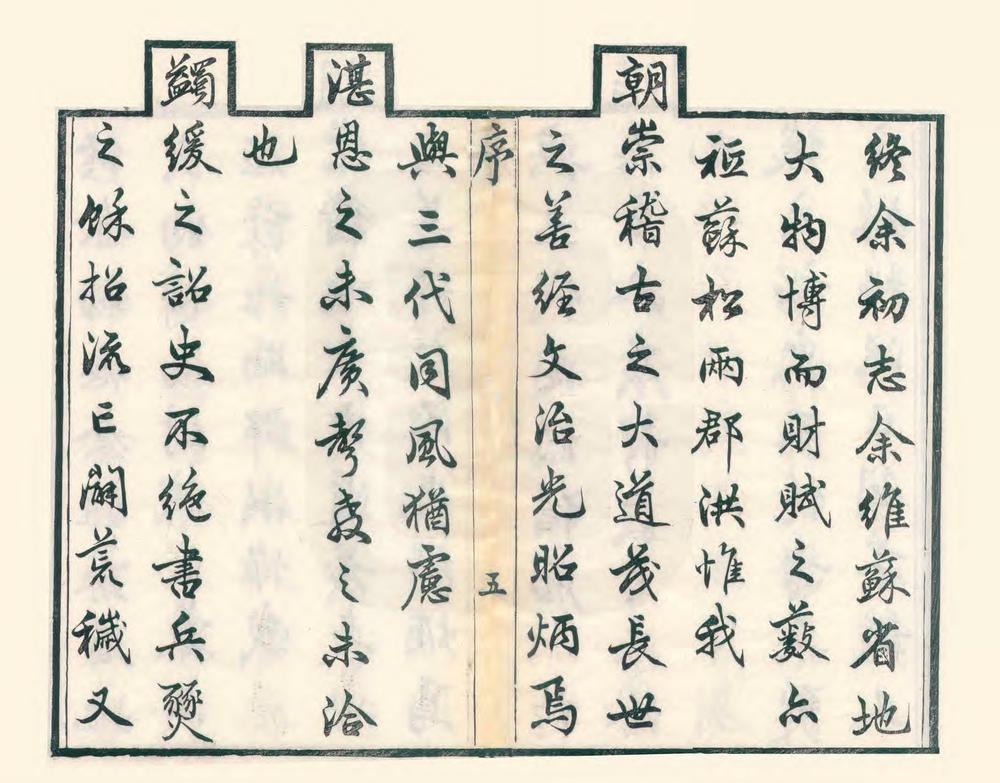 終余初志余維蘇省地
大物博而財賦之藪亦
祗蘇松兩郡洪惟我
朝崇稽古之大道茂長世
之善經文治光昭炳焉
序 五
與三代同風猶慮
湛恩之未廣聲教之未洽
也
蠲緩之詔史不絶書兵燹
之餘招流亡闢荒穢又